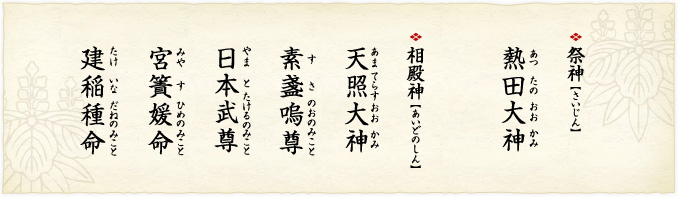 祭神【さいじん】
熱田大神
あつたのおおかみ
相殿神【あいどのしん】
天照大神
あまてらすおおかみ
素盞嗚尊
すさのおのみこと
日本武尊
やまとたけるのみこと
宮簀媛命
みやすひめのみこと
建稲種命
たけいなだねのみこと